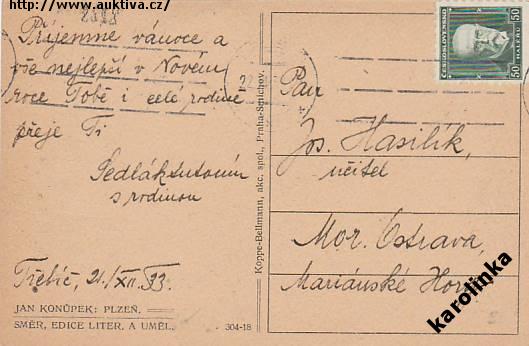 http://www.auktiva.cz/
Příjemné vánoce a
vše nejlepší v Novém
roce Tobě i celé rodině
přeje Ti
Sedlák Antonín
s rodinou
Třebíč, 21./XII. 33.
JAN KONŮPEK: PLZEŇ.
SMĚR, EDICE LITER. A UMĚL.
304-18
Koppe-Bellmann, akc. spol., Praha-Smíchov.
ČESKOSLOVENSKO
50
50
Pan
Jos. Hasilík,
učitel
Mor. Ostrava,
Mariánské Hory
karolinka